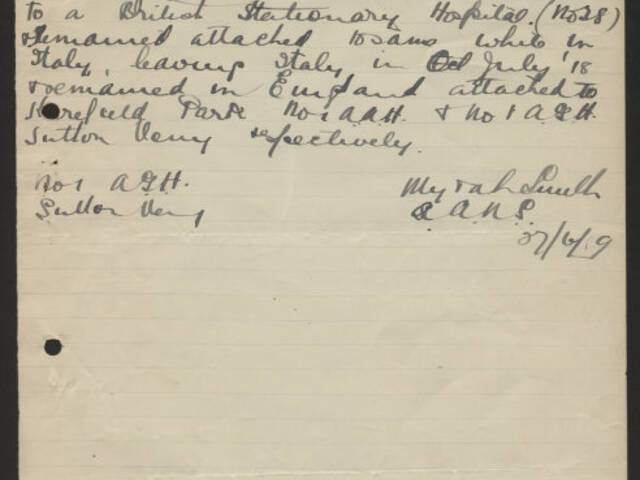 to a British Stationary Hospital. (No 28)
& remained attached to same while in
Italy, leaving Italy in July '18
& remained in England attached to
Harefield Park No 1 A.A.H. & No 1 A.G.H.
Sutton Veny respectively.
No 1 A.G.H.
Sutton Veny
Myrah Smith
A.A.N.S.
27/6/19